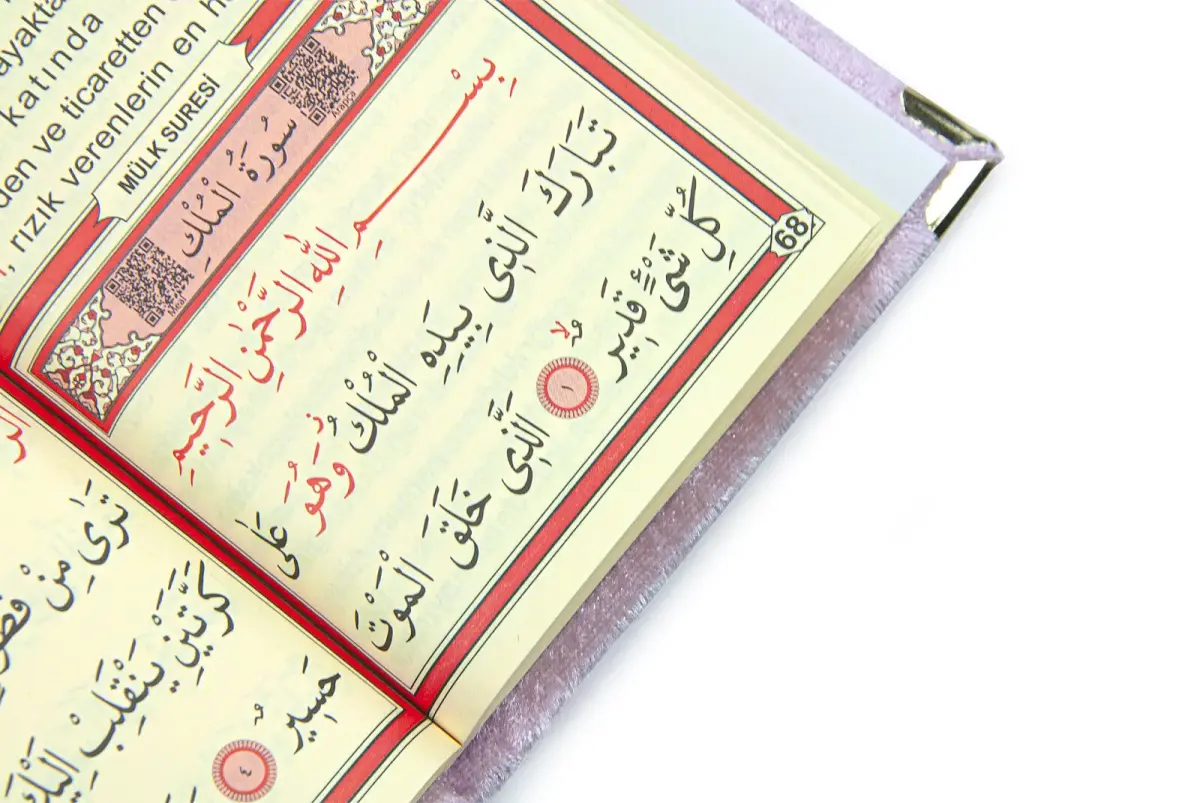 ayakta
katında
den ve ticaretten
, rızık verenlerin en h
MÜLK SURESİ
سُورَةُ الْمُلْكِ
Arapça
Meal
68
بِسْمِ اللّٰهِ الرَّحْمٰنِ الرَّحٖيمِ
تَبَارَكَ الَّذٖى بِيَدِهِ الْمُلْكُ وَهُوَ عَلٰى
كُلِّ شَىْءٍ قَدٖيرٌ ﴿١﴾ اَلَّذٖى خَلَقَ الْمَوْتَ
تَرٰى مِنْ
كَرَّتَيْنِ يَنْقَلِبْ اِلَيْكَ
حَسٖيرٌ ﴿٤﴾